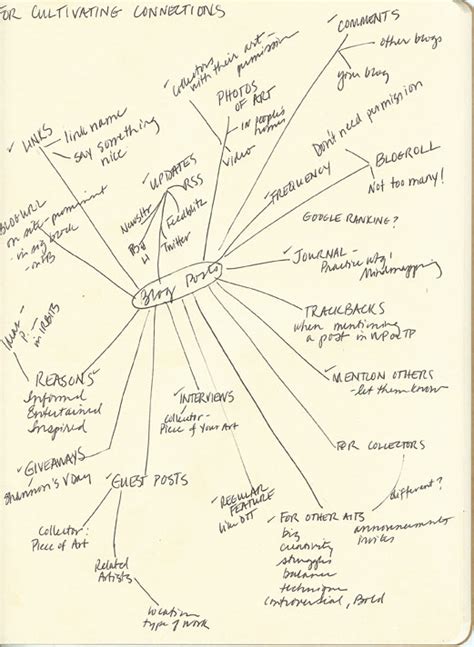 FOR CULTIVATING CONNECTIONS
✓COMMENTS
other blogs
your blog
Collectors
with their art-
permission
PHOTOS
OF ART
- in people's
homes
video
✓LINKS
link name
say something
nice
✓UPDATES
RSS
Newsltr
Feedblitz
Twitter
Don't need permission
BLOGROLL
Not too many!
✓FREQUENCY
GOOGLE RANKING?
BLOG URL
on site - prominent
- in sig block
- on FB
Blog Posts
✓JOURNAL -
Practice wtg!
Mindmapping
TRACKBACKS
when mentioning
a post in
✓MENTION OTHERS
- let them know
REASONS
Informed
Entertained
Inspired
✓INTERVIEWS
Collector -
Piece of Your Art
✓GIVEAWAYS
Shannon's VDay
✓GUEST POSTS
Collector:
Piece of Art
Related
Artists
Location
type of work
REGULAR
FEATURE
like DTT
FOR COLLECTORS
different?
announcements
invites
✓FOR OTHER
biz
creativity
struggles
balance
technique
controversial, Bold